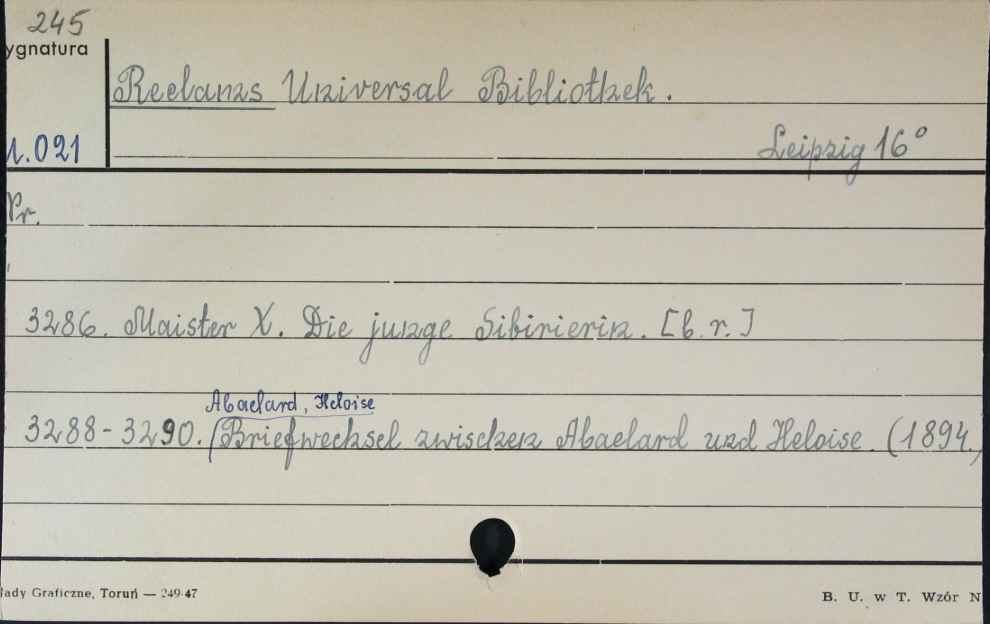 245
ygnatura
Reclams Universal Bibliothek.
1.021
Leipzig 16°
Pr.
3286. Maister X. Die junge Sibirierin. [b.r.]
Abaelard, Heloise
3288-3290. (Briefwechsel zwischen Abaelard und Heloise. (1894.)
łady Graficzne, Toruń — 249-47
B. U. w T. Wzór N